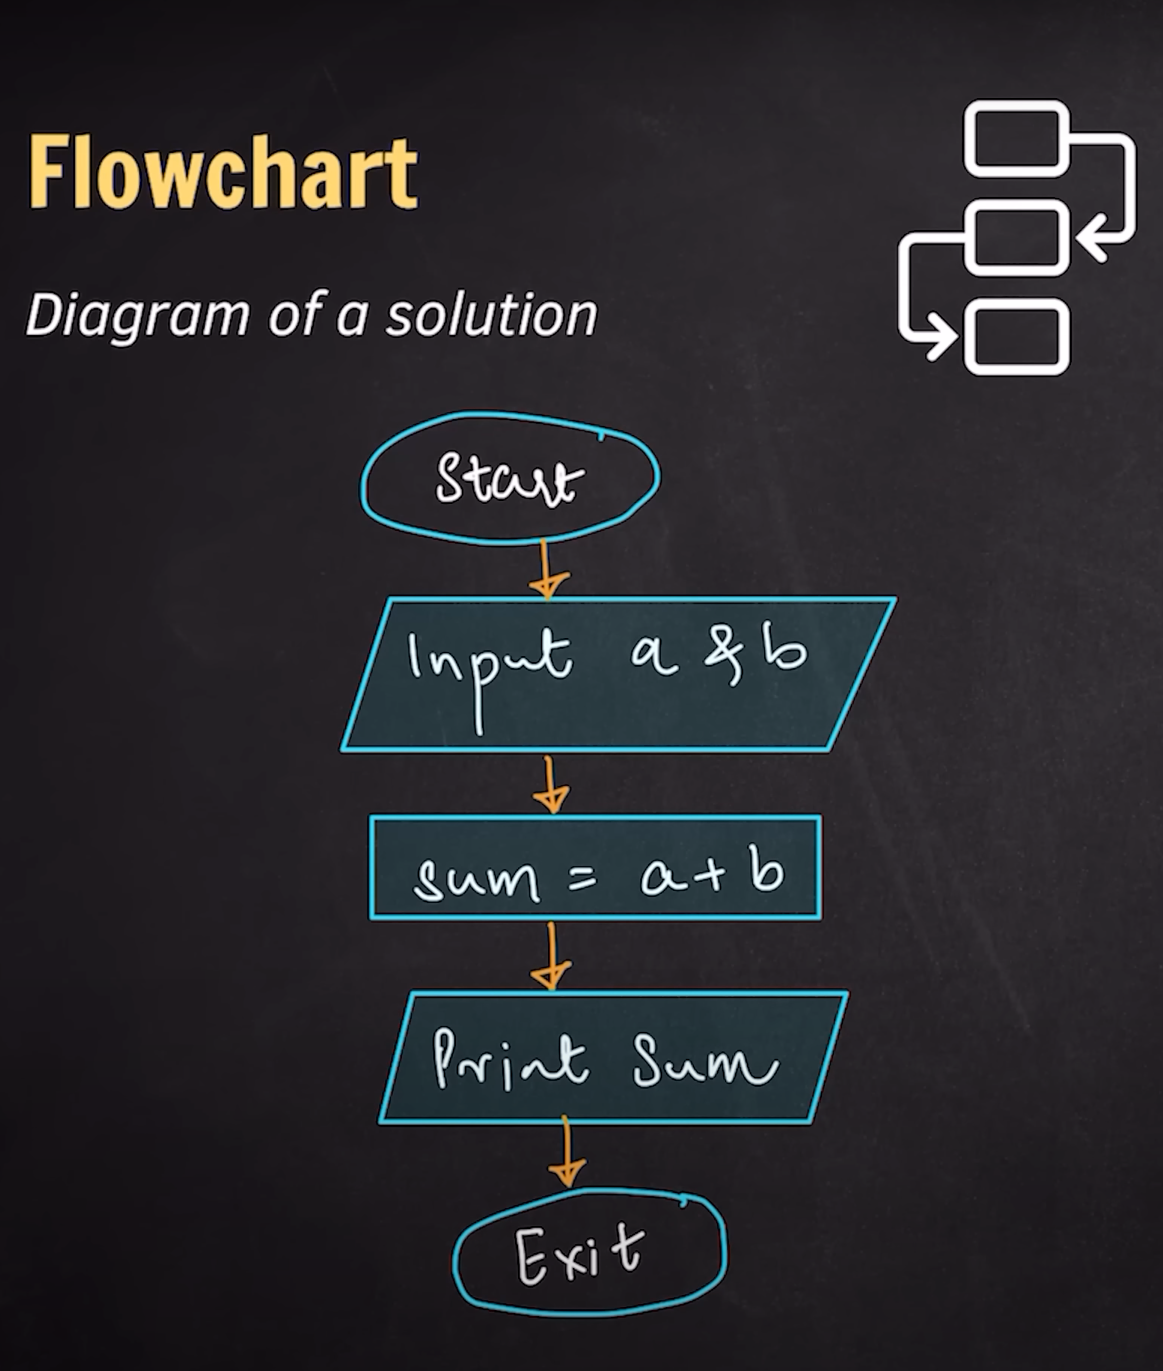 Flowchart
Diagram of a solution
Start
Input a & b
sum = a + b
Print Sum
Exit